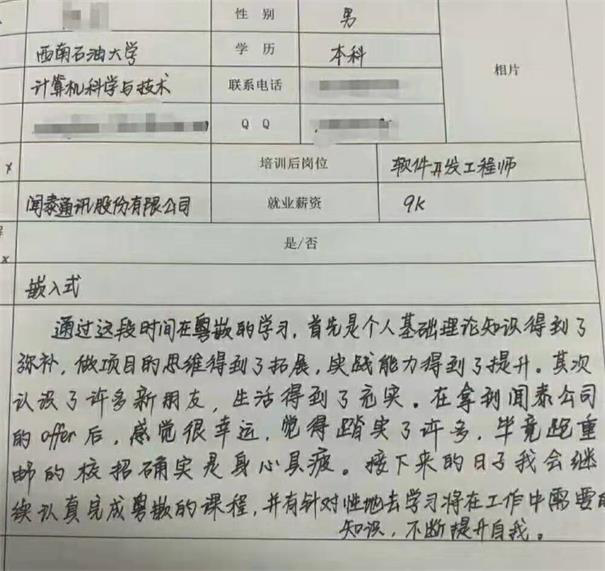 性 别 男
西南石油大学 学 历 本科
计算机科学与技术 联系电话 相片
Q Q
x 培训后岗位 软件开发工程师
闻泰通讯股份有限公司 就业薪资 9K
x 是/否
嵌入式
通过这段时间在粤嵌的学习，首先是个人基础理论知识得到了
弥补，做项目的思维得到了拓展，实战能力得到了提升。其次
认识了许多新朋友，生活得到了充实。在拿到闻泰公司
的offer后，感觉很幸运，觉得踏实了许多，毕竟跑重
邮的校招确实是身心具疲。接下来的日子我会继
续认真完成粤嵌的课程，并有针对性地去学习将在工作中需要的
知识，不断提升自我。